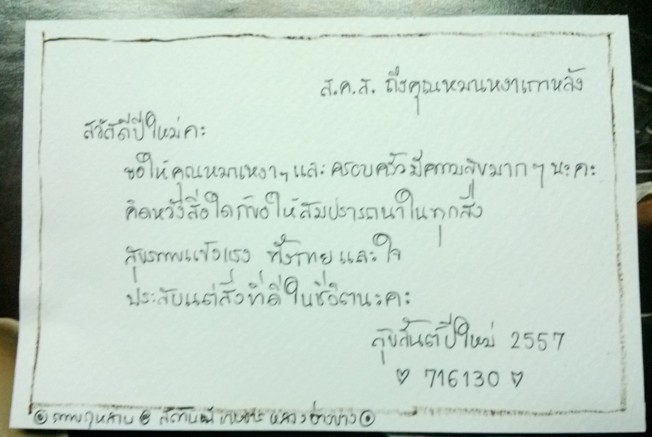 ส.ค.ส. ถึงคุณหมาเหงาเกาหลัง
สวัสดีปีใหม่ค่ะ
ขอให้คุณหมาเหงาๆ และครอบครัวมีความสุขมากๆ นะคะ
คิดหวังสิ่งใดก็ขอให้สมปรารถนาในทุกสิ่ง
สุขภาพแข็งแรง ทั้งกายและใจ
ประสบแต่สิ่งที่ดีในชีวิตนะคะ
สุขสันต์ปีใหม่ 2557
♡ 716130 ♡